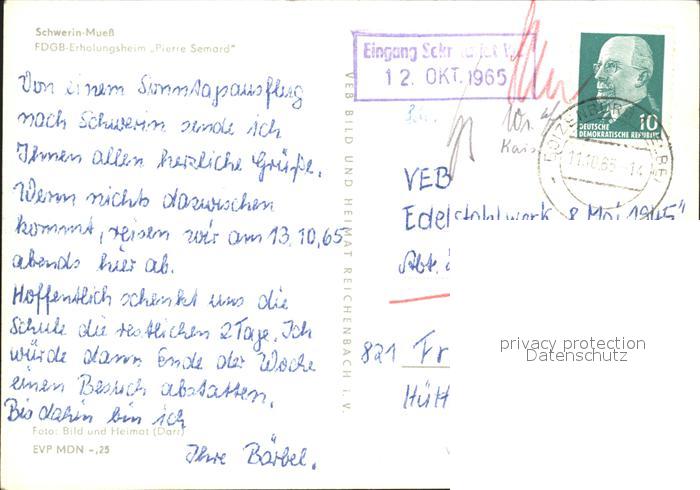 Schwerin-Mueß
FDGB-Erholungsheim „Pierre Semard"
Von einem Sonntagsausflug
nach Schwerin sende ich
Ihnen allen herzliche Grüße.
Wenn nichts dazwischen
kommt, reisen wir am 13.10.65
abends hier ab.
Hoffentlich schenkt uns die
Schule die restlichen 2 Tage. Ich
würde dann Ende der Woche
einen Besuch abstatten.
Bis dahin bin ich
Ihre Bärbel.
Foto: Bild und Heimat (Darr)
EVP MDN -,25
VEB BILD UND HEIMAT REICHENBACH i. V.
Eingang
12. OKT. 1965
10
DEUTSCHE
DEMOKRATISCHE REPUBLIK
11.10.65-14
VEB
Edelstahlwerk „8. Mai 1945"
Abt.
821 Fr
Hütt
privacy protection
Datenschutz